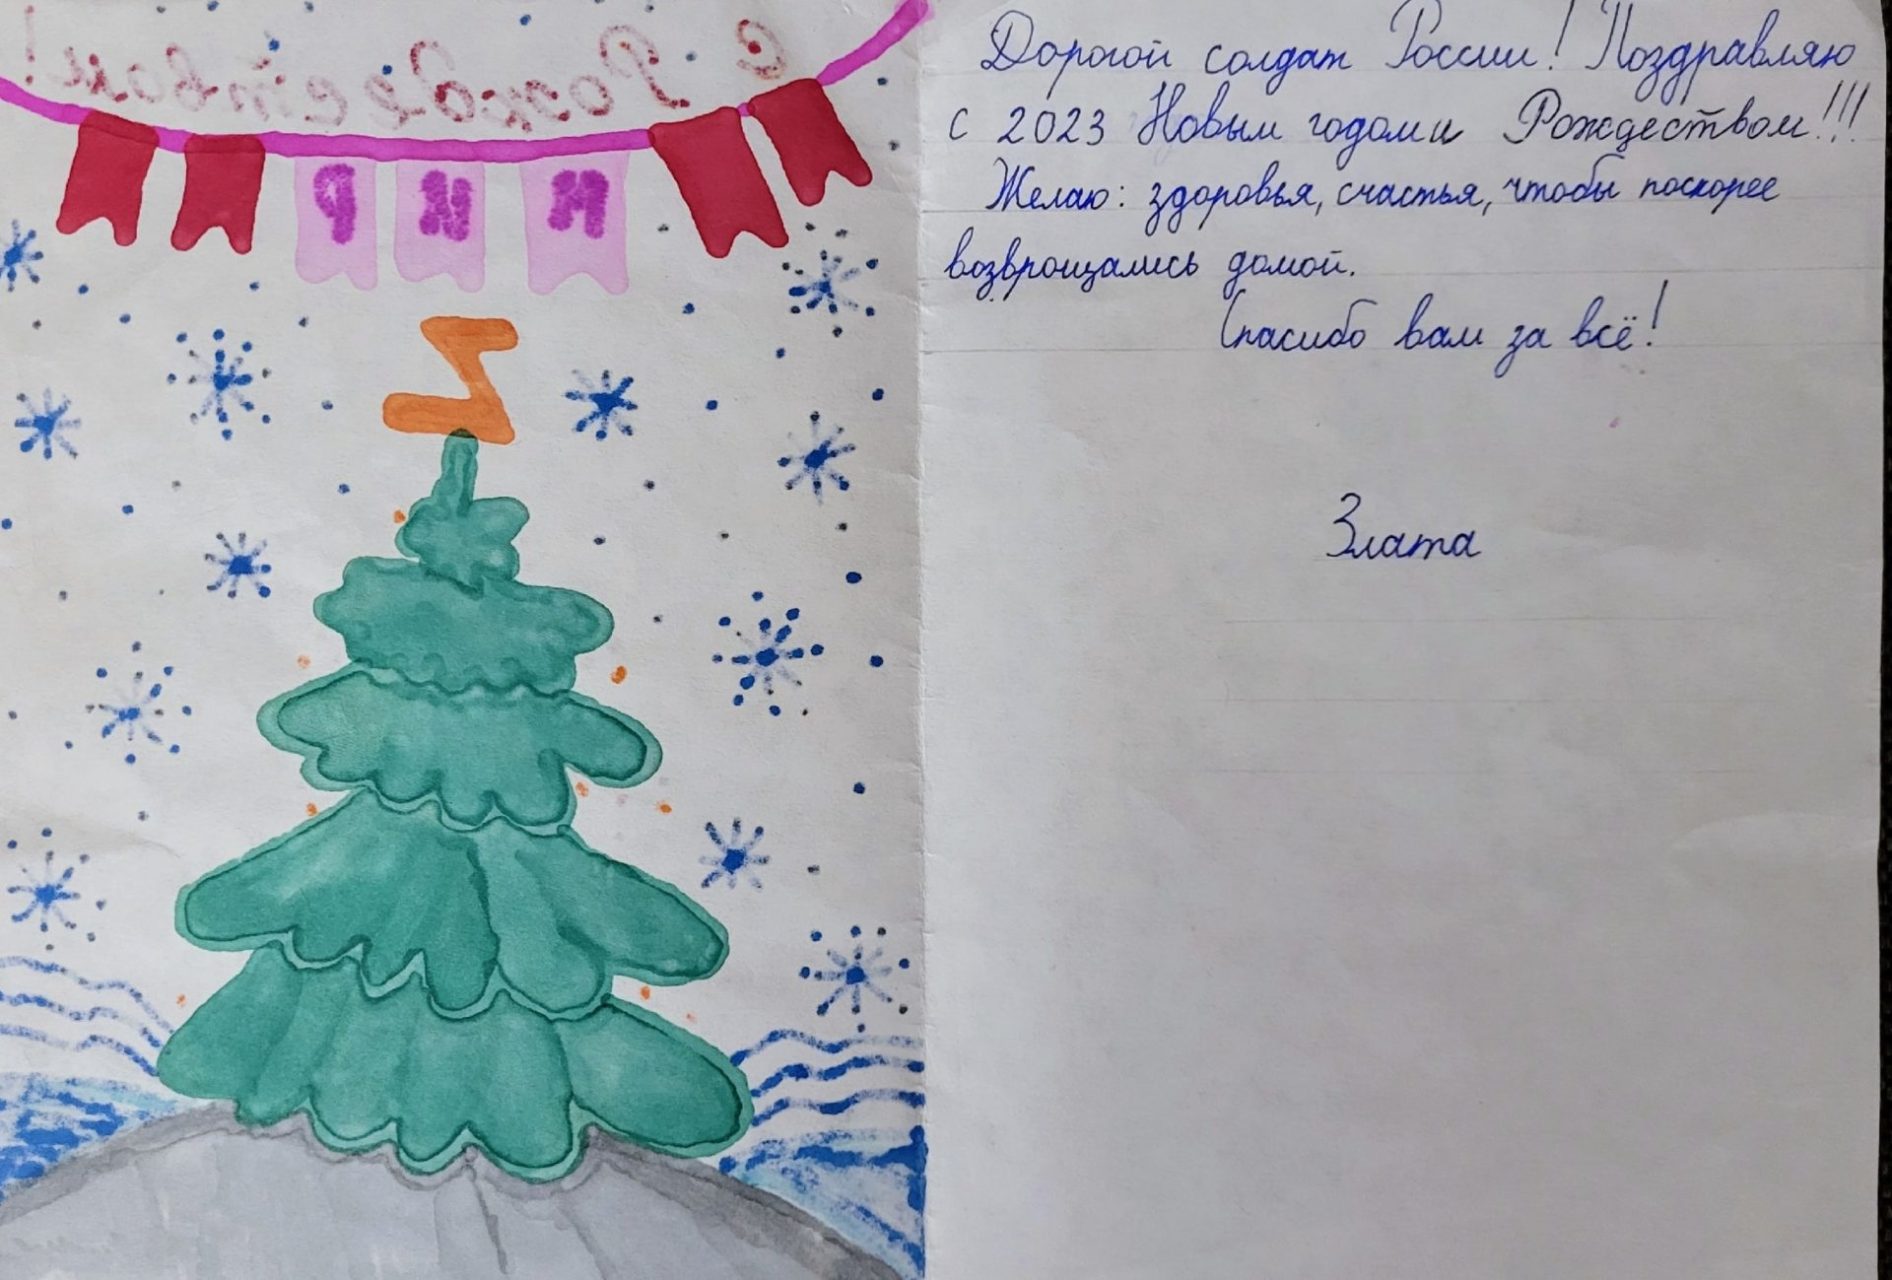 С Рождеством!
МИР
Z
Дорогой солдат России! Поздравляю
с 2023 Новым годом и Рождеством!!!
Желаю: здоровья, счастья, чтобы поскорее
возвращались домой.
Спасибо вам за всё!
Злата